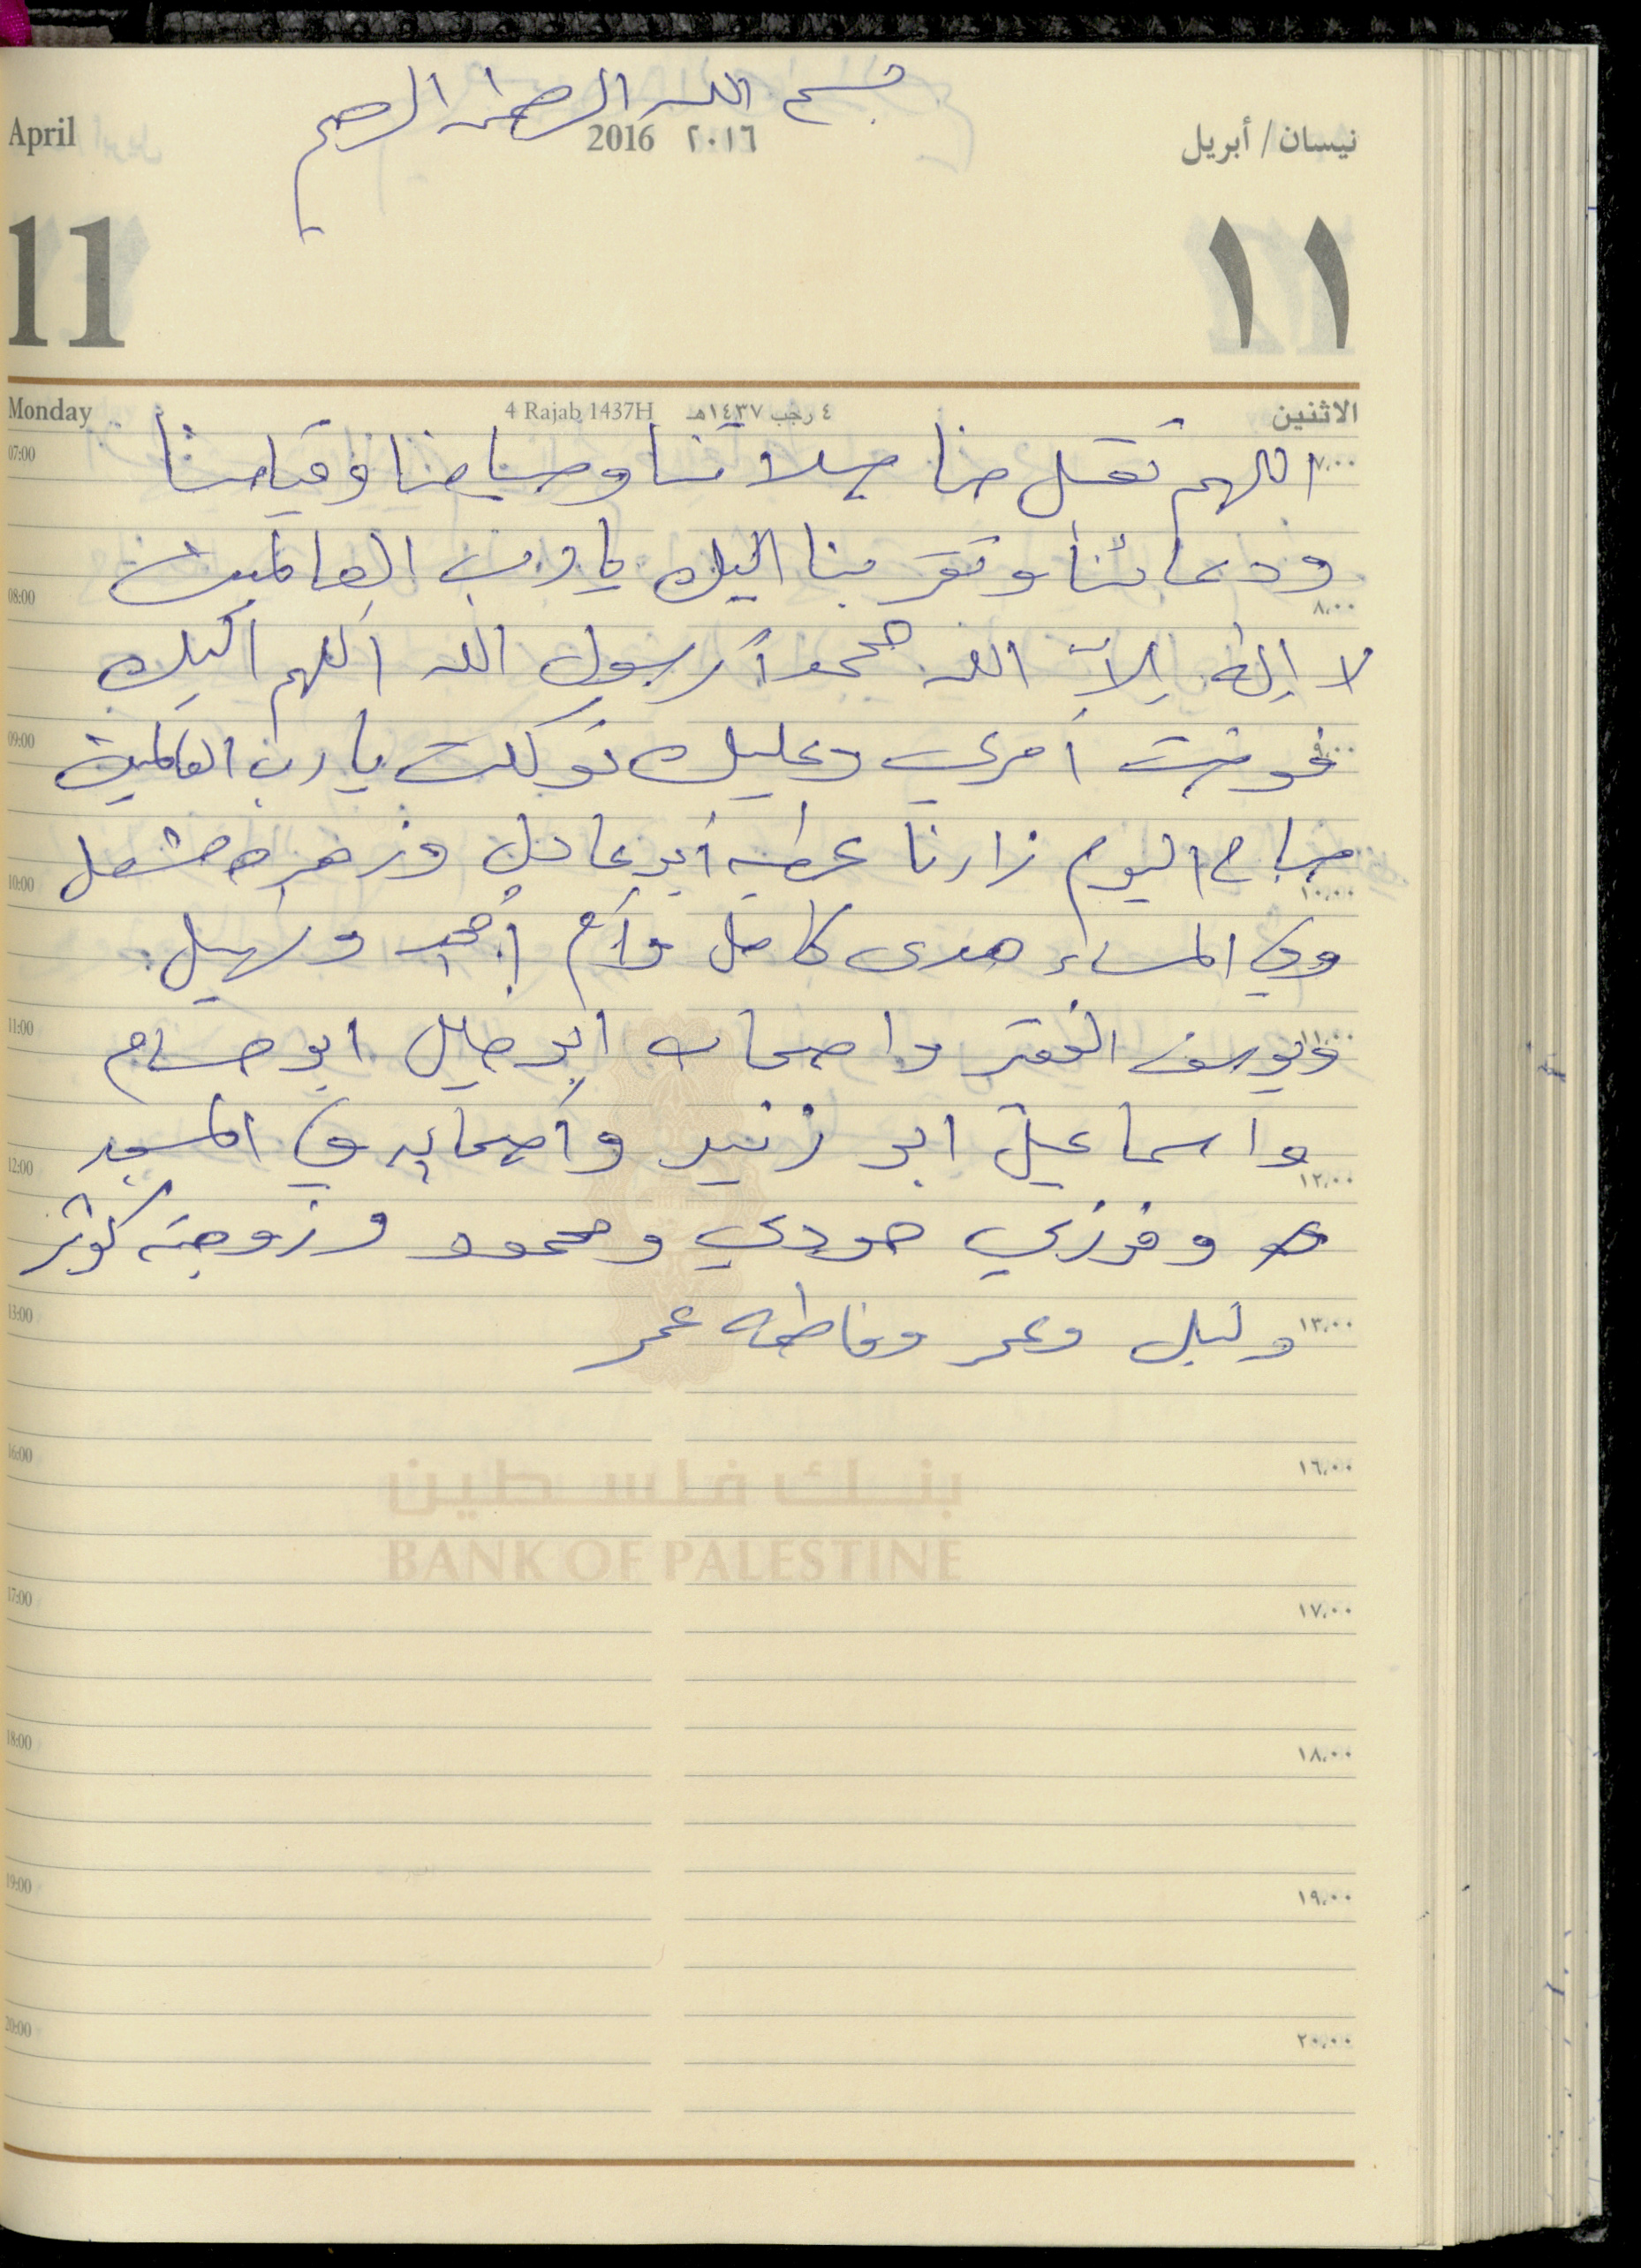 بسم الله الرحمن الرحيم
April 2016 ٢٠١٦ نيسان / أبريل
11 ١١
Monday 4 Rajab 1437H ٤ رجب ١٤٣٧هـ الاثنين
07:00 ٧,٠٠
اللهم تقبل منا صلاتنا وصيامنا وقيامنا
ودعائنا وتقربنا اليك يا رب العالمين
08:00 ٨,٠٠
لا إله إلاّ الله محمداً رسول الله اللهم اليك
09:00 ٩,٠٠
فوضت أمري وعليك توكلت يا رب العالمين
صباح اليوم زارنا عطيه أبو عادل وزهره مشعل
10:00 ١٠,٠٠
وفي المساء هدى كامل وأم أمجد وسهيل
11:00 ١١,٠٠
ويوسف الفقر واصحاب ابو ابو حسام
واسماعيل ابو زنيد وأصحابه في المسجد
12:00 ١٢,٠٠
وفوزي حمودي ومحمود وزوجته كوثر
13:00 ١٣,٠٠
ونبيل وعمر وفاطمه عمر
16:00 ١٦,٠٠
بنك فلسطين
BANK OF PALESTINE
17:00 ١٧,٠٠
18:00 ١٨,٠٠
19:00 ١٩,٠٠
20:00 ٢٠,٠٠